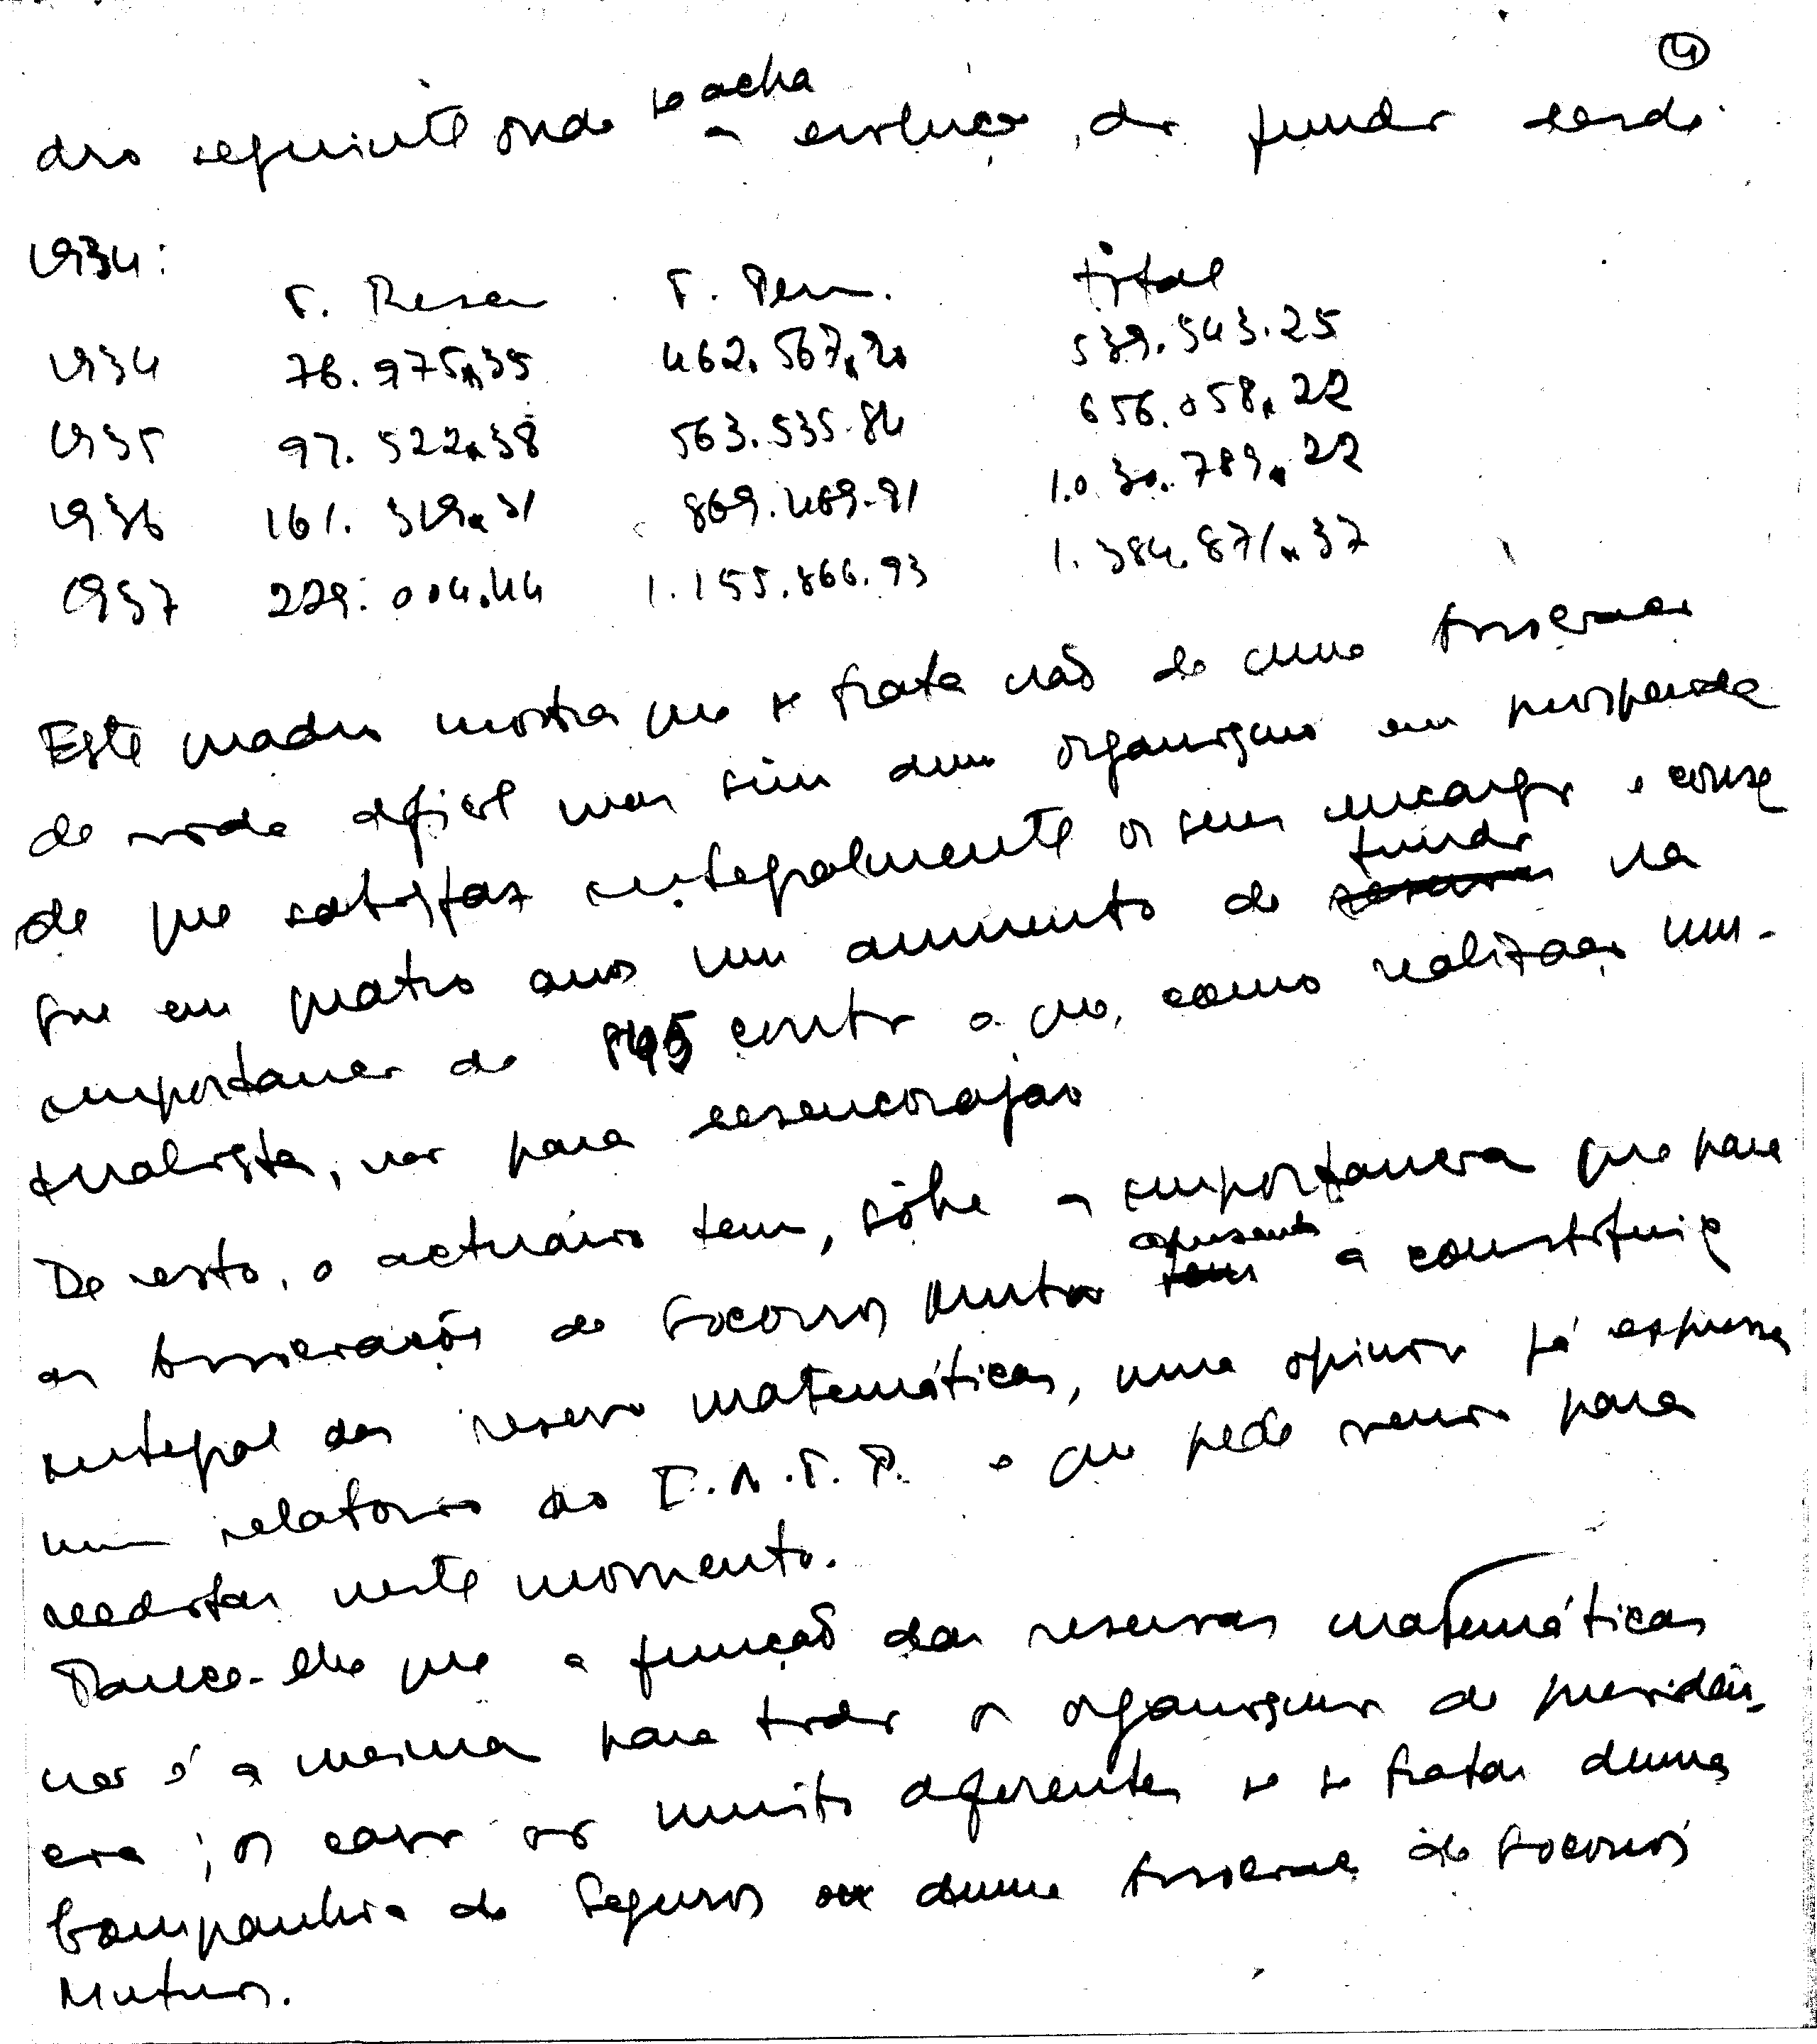 4
dro seguinte onde se acha a evolução dos fundos desde
1934:
F. Reser F. Perm. total
1934 76.975$35 462.567$90 539.543.25
1935 97.522$38 563.535.84 656.058$22
1936 161.319$31 869.469.91 1.030.789$22
1937 229.004.44 1.155.866.93 1.384.871$37
Este quadro mostra que se trata não de uma Associação
de vida difícil mas sim dum organismo em prosperida
de que satisfaz integralmente os seus encargos e conse
gue em quatro anos um aumento de fundos na
importancia de 845 contos o que, como realização mu-
tualista, não é para desencorajar
De resto, o actuário tem, sôbre a importancia que para
as Associações de Socorros Mutuos apresenta a constituiç
integral das reservas matemáticas, uma opinião já expressa
num relatorio ao I.N.T.P. e que pede venia para
reeditar neste momento.
Parece-lhe que a função das reservas matemáticas
não é a mesma para todos os organismos de previdên-
cia; os casos são muito diferentes se se tratar duma
Companhia de Seguros ou duma Associação de Socorros
Mutuos.